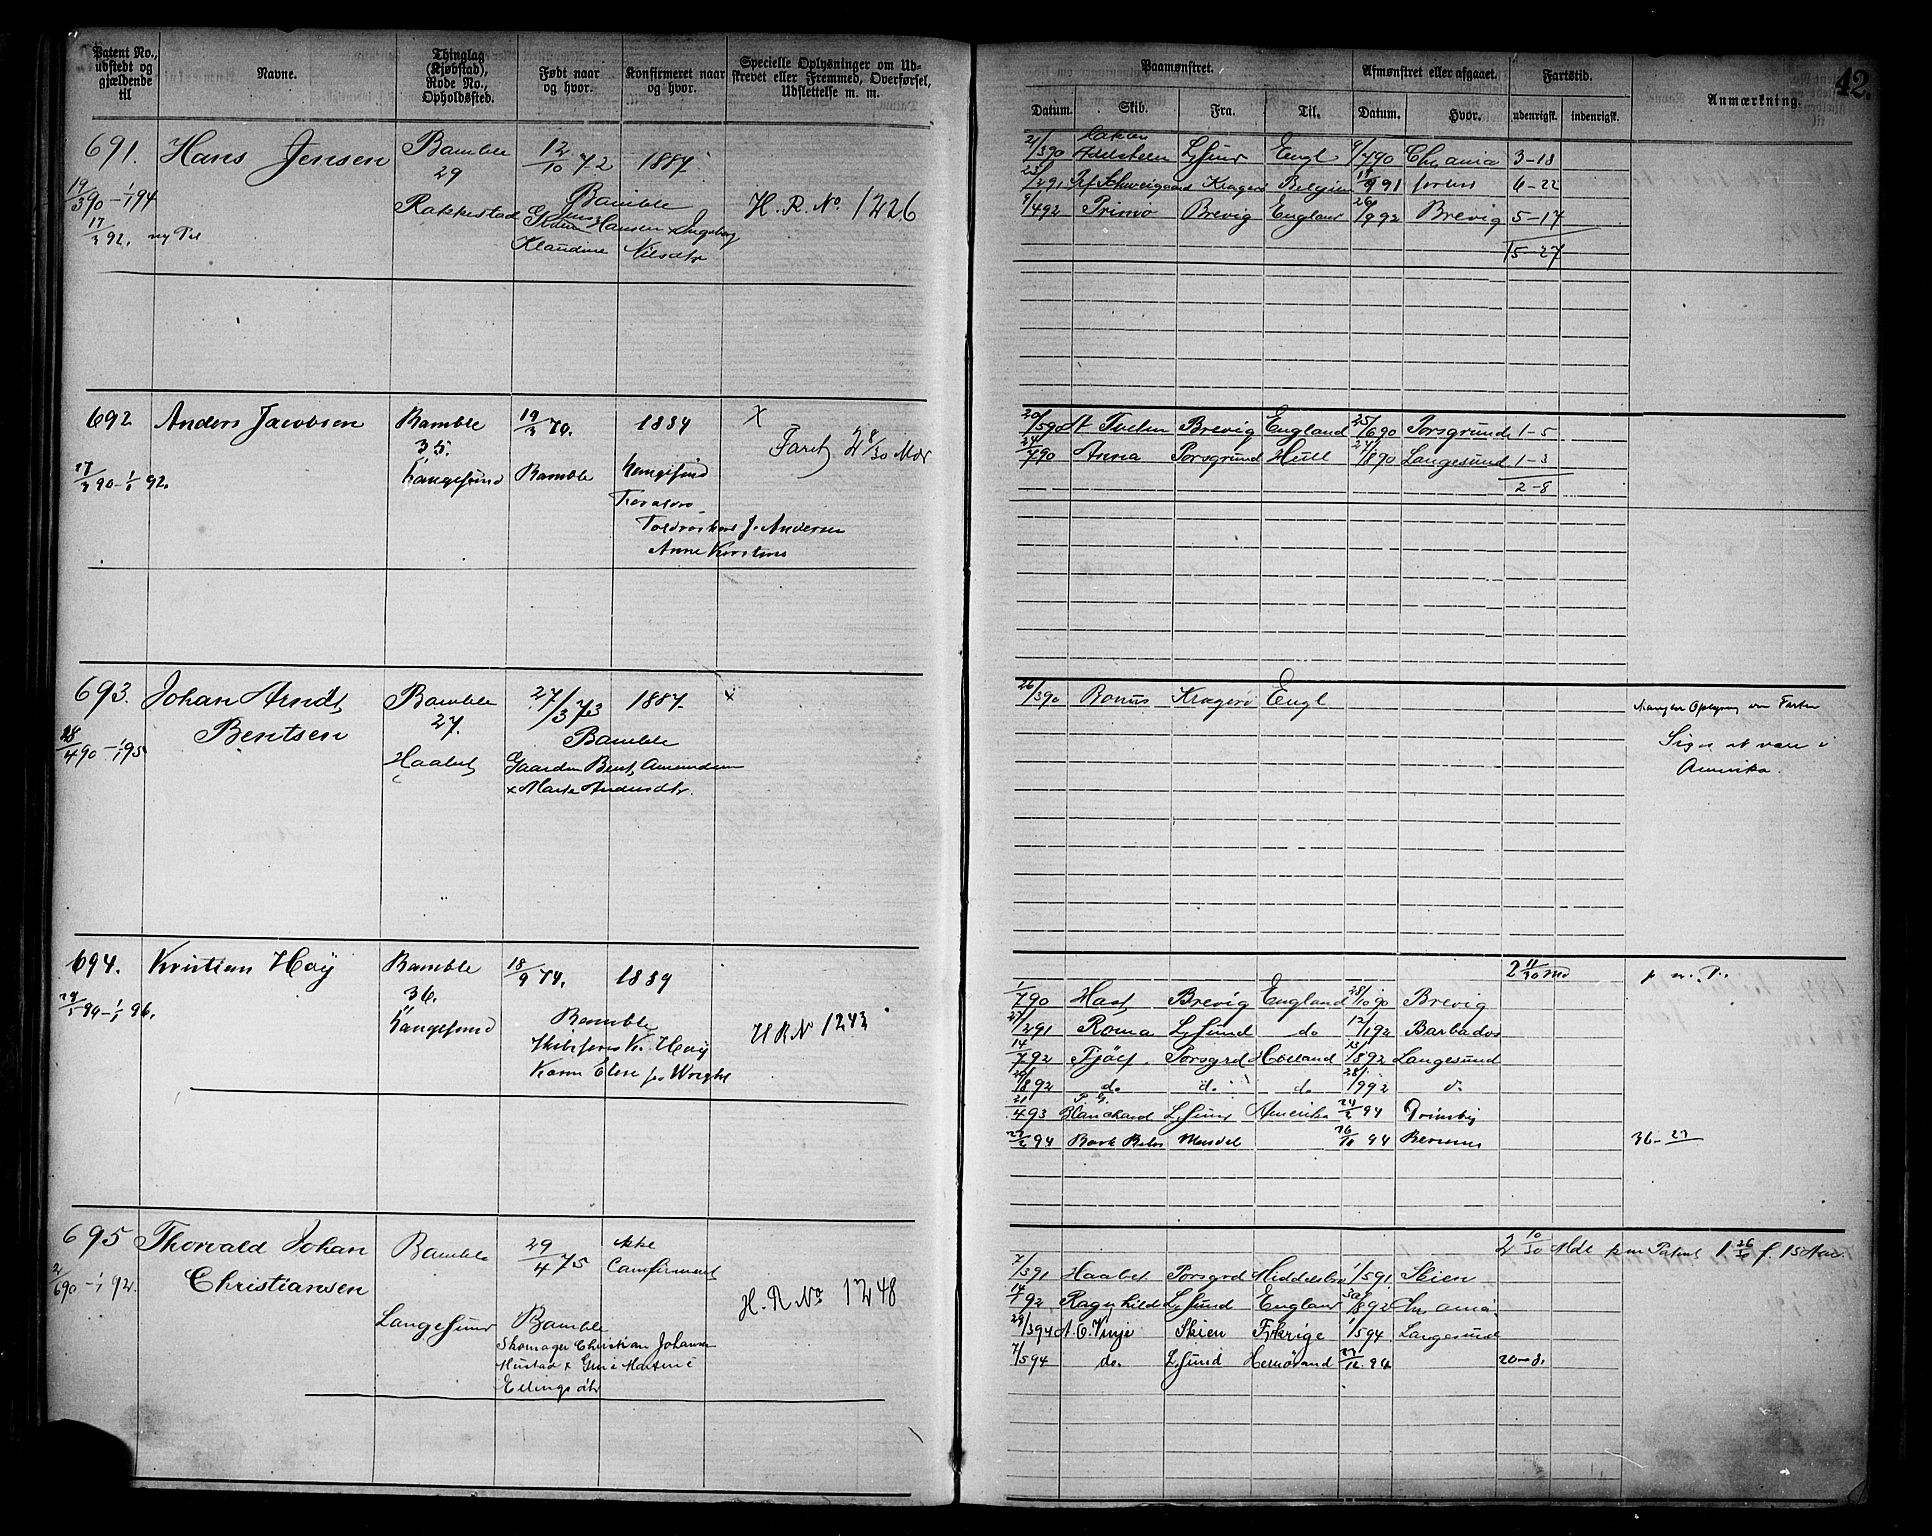 Patent No., udstedt og gjældende til
Navne.
Thinglag (Kjøbstad), Rode No., Opholdssted.
Født naar og hvor.
Konfirmeret naar og hvor.
Specielle Oplysninger om Udskrevet eller Fremmed, Overførsel, Udslettelse m. m.
Paamønstret.
Datum. Skib. Fra. Til.
Afmønstret eller afgaaet.
Datum. Hvor.
Fartstid.
udenrigsk. indenrigsk.
Anmærkning.
42.
691. Hans Jensen Bamble 12/10 72 1887.
29
19/3 90 – 1/1 94 Rakkestad Bamble H. R. No 1226
17/3 92. ny Pat
Hansen & Ingeborg
Klaudine Nilsdtr
Hakon
21/3 90 Adelsteen L,sund Engl 9/4 90 Chr,ania 3-18
25/2 91 Prf Schweigaard Kragerø Belgien 91 6-22
9/4 92 Primo Brevig England 26/9 92 Brevig 5-17
15-27
692 Anders Jacobsen Bamble 19/3 74. 1889 x
35. Faret 2 8/30 Mdr
17/3 90 – 1/1 92. Langesund Bamble Langesund
Foreldre
J. Andersen
Anne Kirstine
20/5 90 Brevig England 25/6 90 Porsgrund 1-5
24/7 90 Anna Porsgrund Hull 27/8 90 Langesund 1-3
2-8
693. Johan Arndt Bamble 27/3 73 1887 x
Bentsen 27. Bamble
28/4 90 – 1/1 95 Haabet Gaardm Bent Amundsen
& Marte Andersdtr.
26/3 90 Bonus Kragerø Engl
Mangler Oplysng om Farten
Siges at være i
Amerika.
694. Kristian Høy Bamble 18/9 74. 1889
36.
90 – 1/1 96. Langesund Bamble H R No 1243
Kr. Høy
Karen Elise f. Wright
2 11/30 Md p. n. P.
1/7 90 Haab Brevig England 28/10 90 Brevig
27/2 91 Roma L,sund do 12/1 92 Barbados
14/7 92 Fjølf. Porsgrd Holland 13/8 92 Langesund
20/8 92 do do do 28/9 92 do
P. G.
21/4 93 Blanchard L,sund Amerika 24/2 94 Grimsby
94 Bark Mandal 26/11 94 36-27
695 Thorvald Johan Bamble 29/4 75 ikke
Christiansen Comfirmert
2/6 90 – 1/1 92. H. R No 1248
Langesund Bamble
Skomager Christian Johannes
Mustad & Gine Martine
Ellingsdtr
2 10/30 Mdr p nn Patent 1 26/30 f. 15 Aar
7/3 91 Haabet Porsgrd Middelsbro 1/5 91 Skien
14/7 92 Ragnhild L,sund England 30/8 92 Chr,ania
29/3 94 A. O. Vinje Skien 1/5 94 Langesund
7/5 94 do. L,sund Hernøsand 94 20-8.